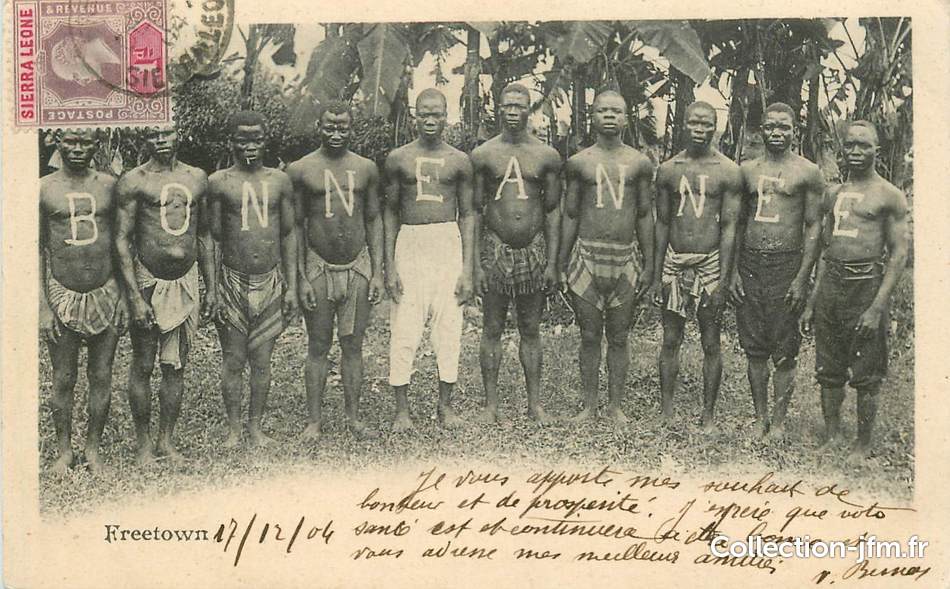 & REVENUE
SIERRA LEONE
1d
POSTAGE
BONNEANNEE
Freetown 17/12/04
Je vous apporte mes souhait de
bonheur et de prosperité. J'espère que votre
santé est et continuera
vous adresse mes meilleurs amitiés
Collection-jfm.fr